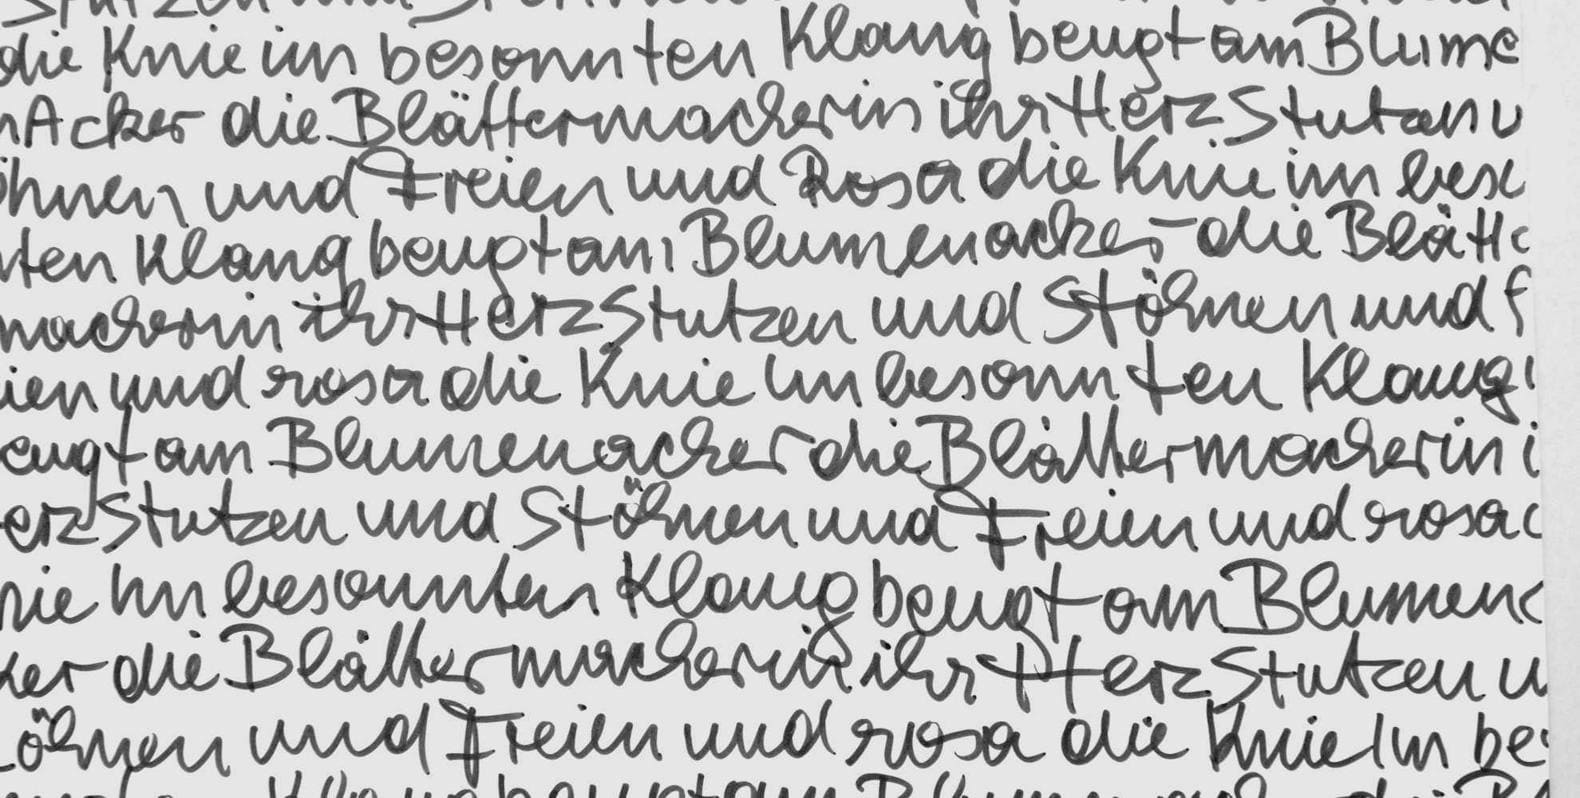 Stutzen und Stöhnen
die Knie im besonnten Klang beugt am Blume
nAcker die Blättermacherin ihr Herz Stutzen u
öhnen und Freien und Rosa die Knie im beso
nten Klang beugt am Blumenacker die Blätte
macherin ihr Herz Stutzen und Stöhnen und F
ien und rosa die Knie Im besonnten Klang
eugt am Blumenacker die Blättermacherin i
erz Stutzen und Stöhnen und Freien und rosa d
nie Im besonnten Klang beugt am Blumena
ker die Blättermacherin ihr Herz Stutzen u
öhnen und Freien und rosa die Knie Im bes
Klang beugt am Blumenacker die Bl